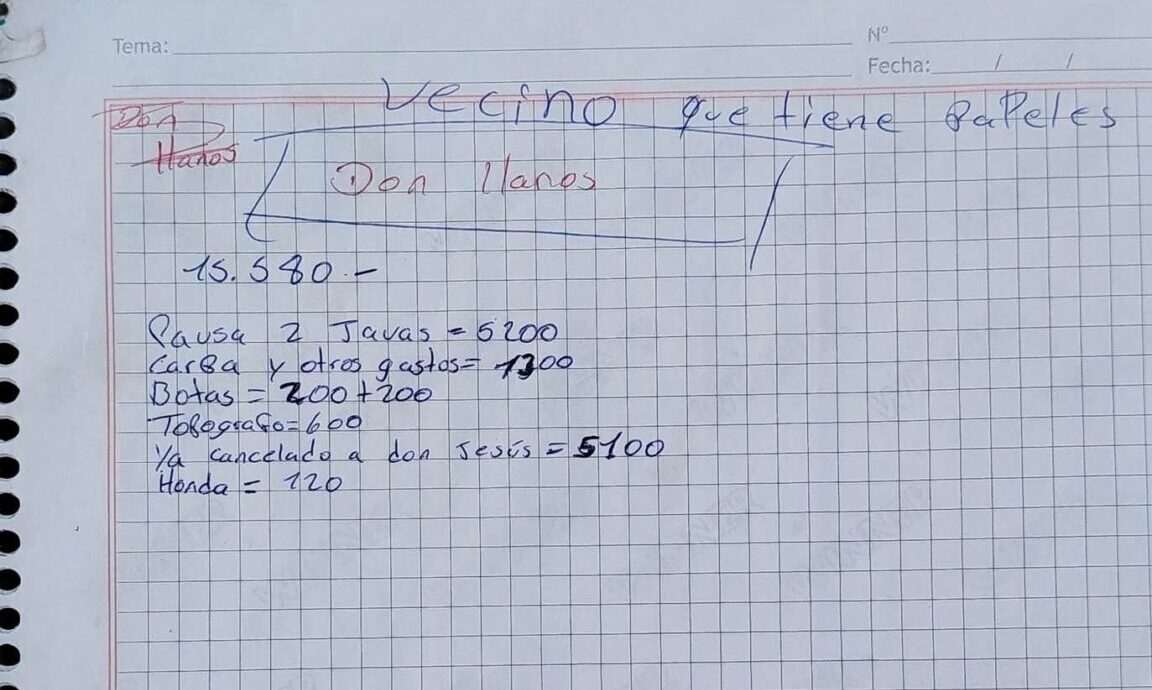 Tema:
N°
Fecha: / /
Vecino que tiene papeles
Don
llanos
Don llanos
15.580.-
Pausa 2 Javas = 5200
carga y otros gastos= 1300
Botas = 200+200
Topografo=600
Ya cancelado a don Jesús = 5100
Honda = 120